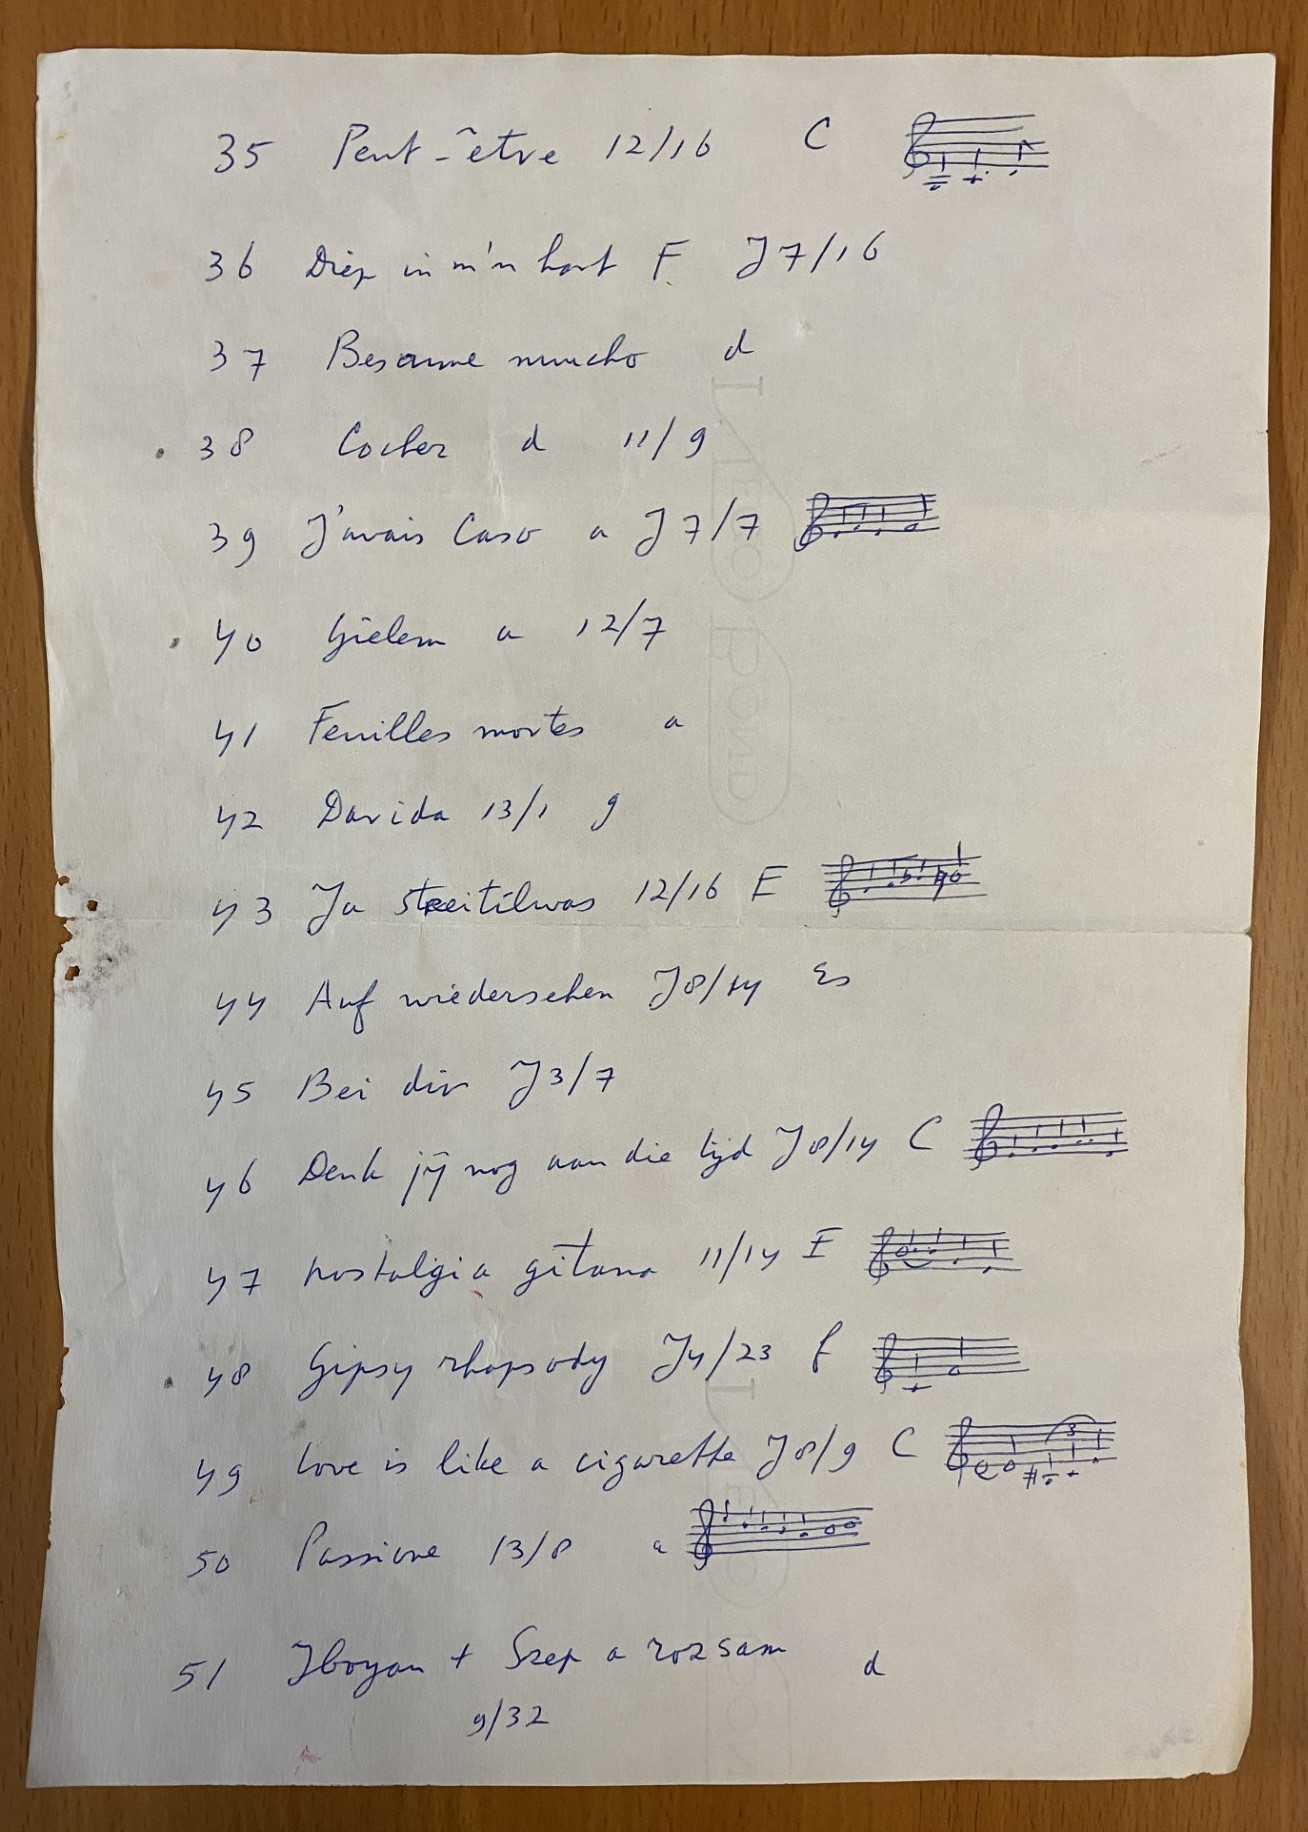 35 Peut-être 12/16 C
36 Diep in m'n hart F J7/16
37 Besame mucho d
38 Cocher d 11/9
39 J'avais Caso a J7/7
40 Gielem a 12/7
41 Feuilles mortes a
42 Davida 13/1 g
43 Ja 12/16 E
44 Auf wiedersehen J8/14 Es
45 Bei dir J3/7
46 Denk jij nog aan die tijd J8/14 C
47 nostalgia gitana 11/14 E
48 Gipsy rhapsody J4/23 f
49 Love is like a cigarette J8/9 C
3
50 Passione 13/8 a
51 Iboyan + Szep a rozsam d
9/32